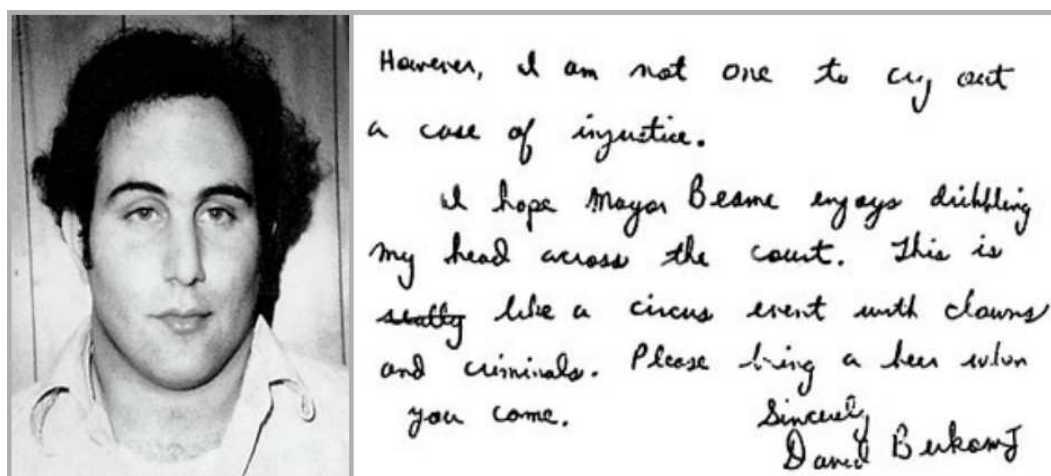 However, I am not one to cry out
a case of injustice.
I hope Mayor Beame enjoys dribbling
my head across the court. This is
really like a circus event with clowns
and criminals. Please bring a beer when
you come.
Sincerely
David Berkowitz